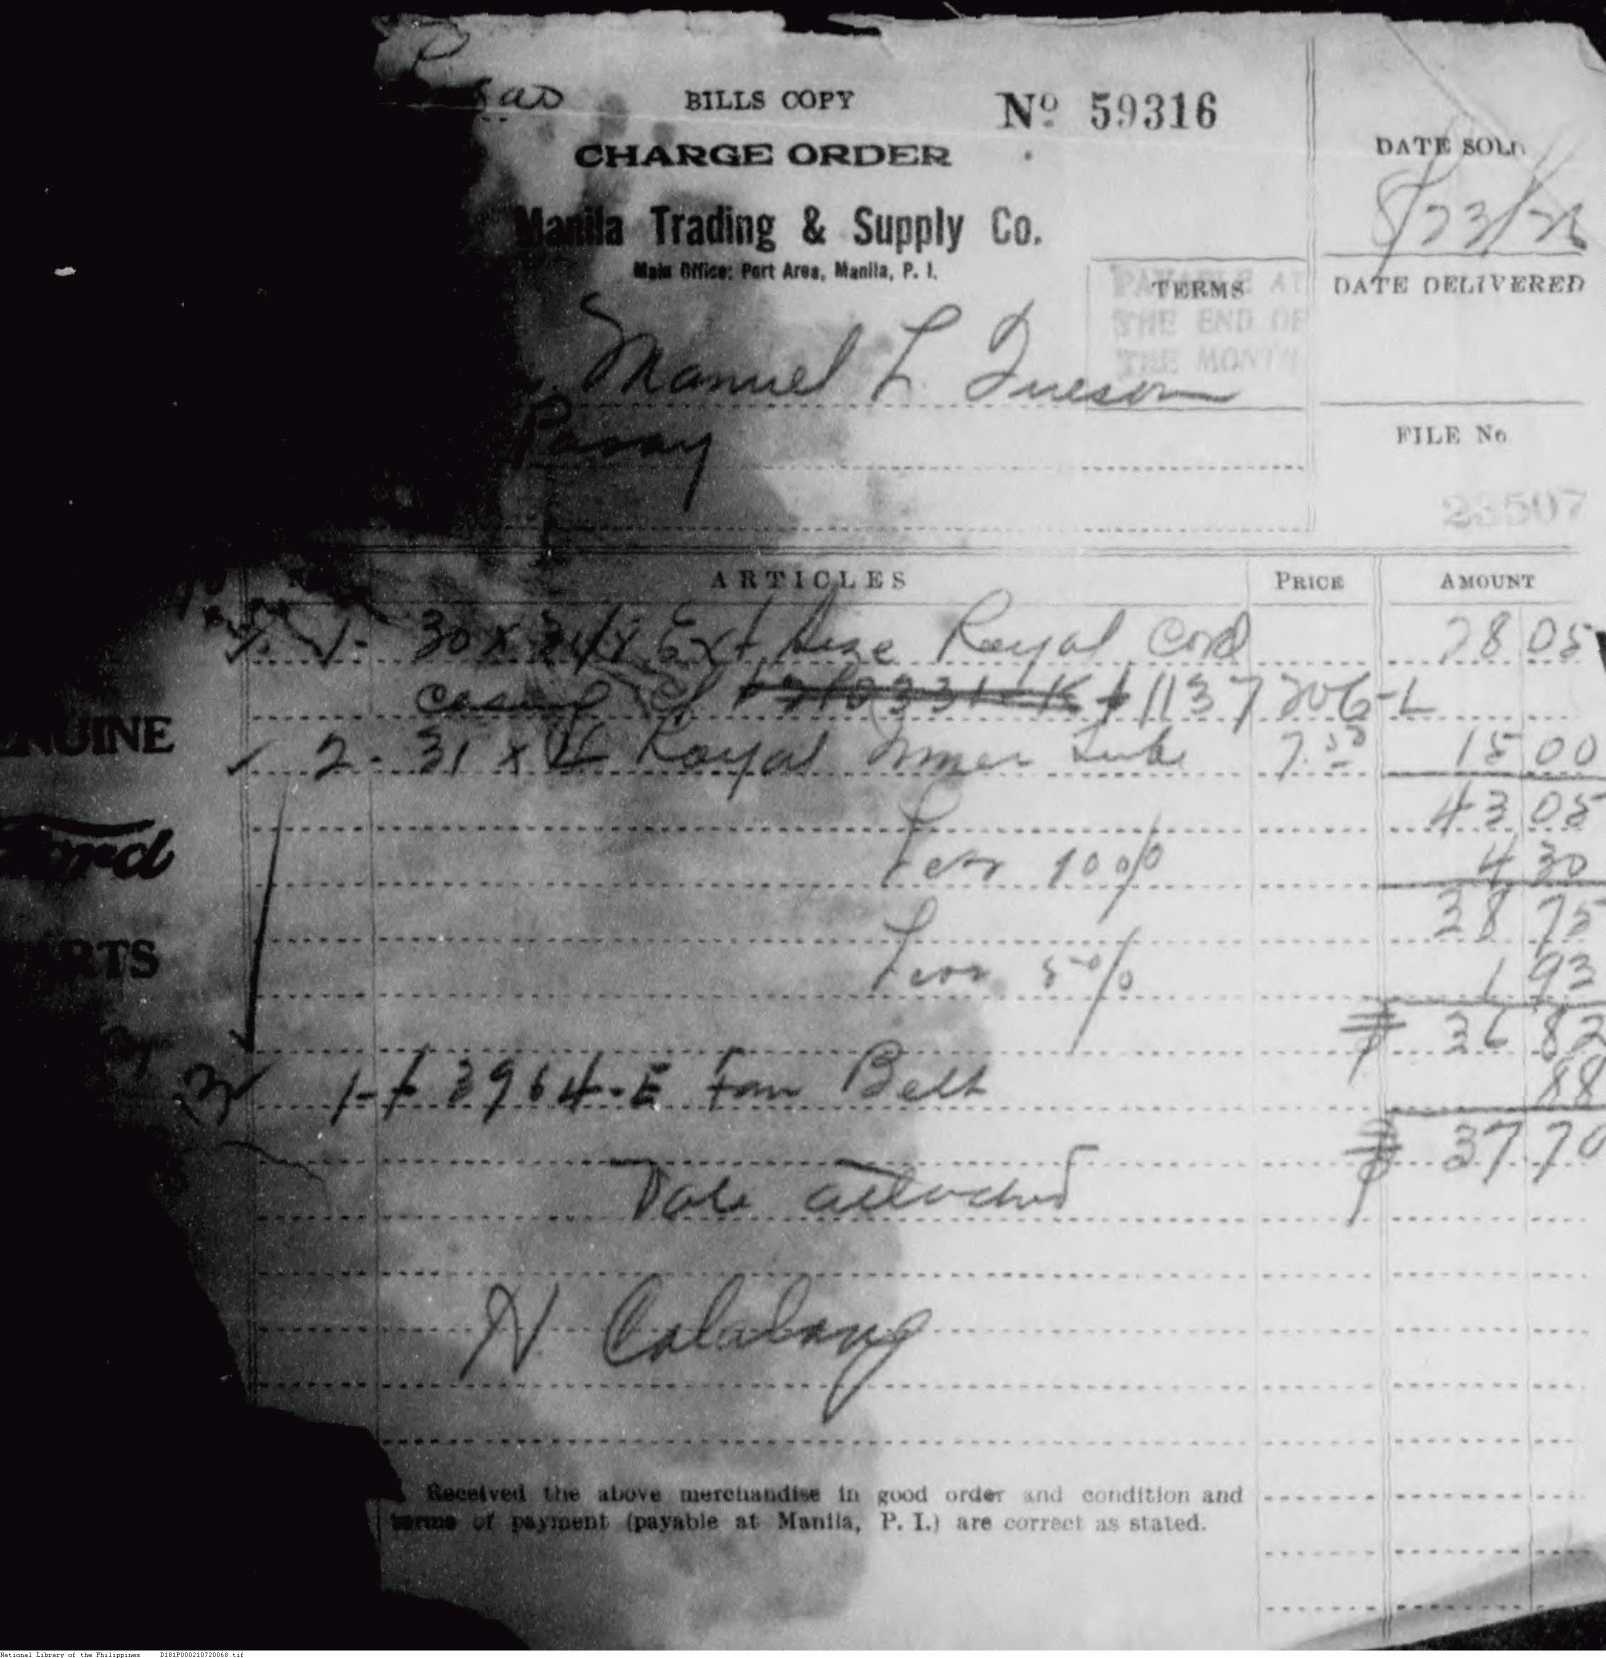 BILLS COPY
Nº 59316
CHARGE ORDER
DATE SOLD
8/23/26
Manila Trading & Supply Co.
Main Office: Port Area, Manila, P. I.
TERMS
PAYABLE AT
THE END OF
THE MONTH
DATE DELIVERED
Manuel L. Queson
Pasay
FILE No
23507
ARTICLES PRICE AMOUNT
1- 30 x 3 1/2 Ext Size Royal Cord 28 05
casing 1137206-L
2- 31 x 4 Royal Inner Tube 7.50 15 00
43 05
Less 10% 4 30
38 75
Less 5% 1 93
₱ 36 82
1- # 3964-E Fan Belt 88
₱ 37 70
attached
N. Calabang
GENUINE
Ford
PARTS
Received the above merchandise in good order and condition and
terms of payment (payable at Manila, P. I.) are correct as stated.
National Library of the Philippines D181P000210720068.tif